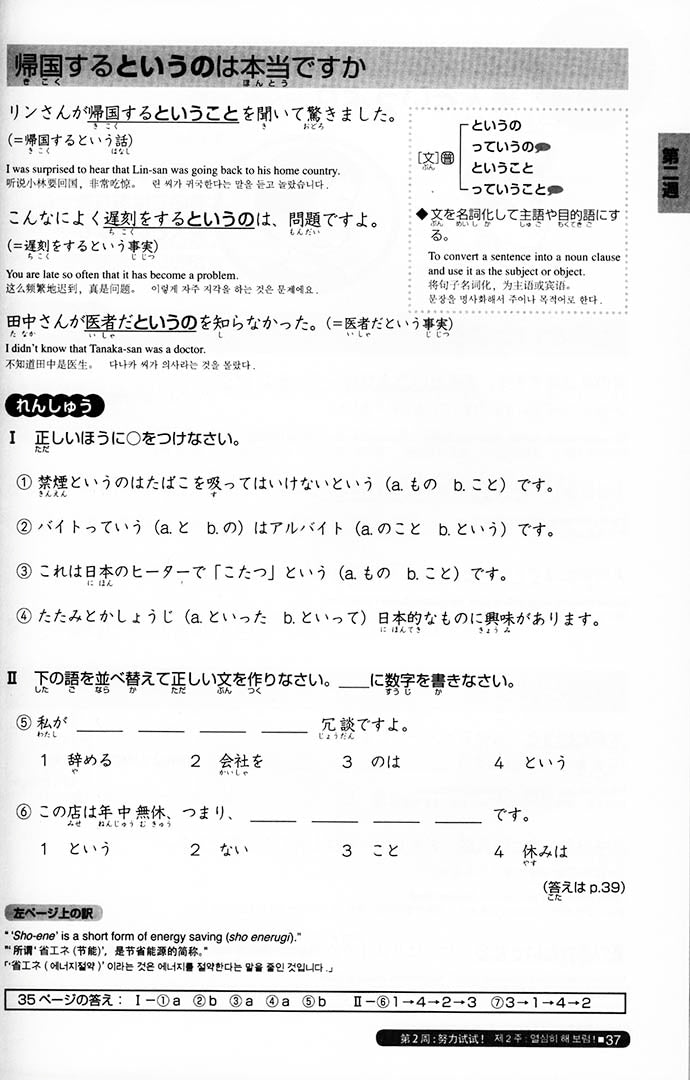 帰国するというのは本当ですか
きこく ほんとう
リンさんが帰国するということを聞いて驚きました。
きこく き おどろ
(=帰国するという話)
きこく はなし
I was surprised to hear that Lin-san was going back to his home country.
听说小林要回国，非常吃惊。 린 씨가 귀국한다는 말을 듣고 놀랐습니다.
こんなによく遅刻をするというのは、問題ですよ。
ちこく もんだい
(=遅刻をするという事実)
ちこく じじつ
You are late so often that it has become a problem.
这么频繁地迟到，真是问题。 이렇게 자주 지각을 하는 것은 문제예요.
田中さんが医者だというのを知らなかった。(=医者だという事実)
たなか いしゃ し いしゃ じじつ
I didn't know that Tanaka-san was a doctor.
不知道田中是医生。 다나카 씨가 의사라는 것을 몰랐다.
[文]普
ぶん
というの
っていうの
ということ
っていうこと
◆文を名詞化して主語や目的語にす
ぶん めいしか しゅご もくてきご
る。
To convert a sentence into a noun clause
and use it as the subject or object.
将句子名词化，为主语或宾语。
문장을 명사화해서 주어나 목적어로 한다.
第二週
れんしゅう
Ⅰ 正しいほうに○をつけなさい。
ただ
① 禁煙というのはたばこを吸ってはいけないという（a. もの b. こと）です。
きんえん す
② バイトっていう（a. と b. の）はアルバイト（a. のこと b. という）です。
③ これは日本のヒーターで「こたつ」という（a. もの b. こと）です。
にほん
④ たたみとかしょうじ（a. といった b. といって）日本的なものに興味があります。
にほんてき きょうみ
Ⅱ 下の語を並べ替えて正しい文を作りなさい。___に数字を書きなさい。
した ご なら か ただ ぶん つく すうじ か
⑤ 私が ____ ____ ____ ____ 冗談ですよ。
わたし じょうだん
1 辞める 2 会社を 3 のは 4 という
や かいしゃ
⑥ この店は年中無休、つまり、 ____ ____ ____ ____ です。
みせ ねんじゅうむきゅう
1 という 2 ない 3 こと 4 休みは
やす
(答えは p.39)
こた
左ページ上の訳
"'Sho-ene' is a short form of energy saving (sho enerugi)."
"'所谓'省エネ(节能)'，是节省能源的简称。"
「'省エネ(에너지절약)'이라는 것은 에너지를 절약한다는 말을 줄인 것입니다.」
35ページの答え： Ⅰ－①a ②b ③a ④a ⑤b Ⅱ－⑥1→4→2→3 ⑦3→1→4→2
第2周：努力试试！ 제2주 : 열심히 해 보렴! ■37